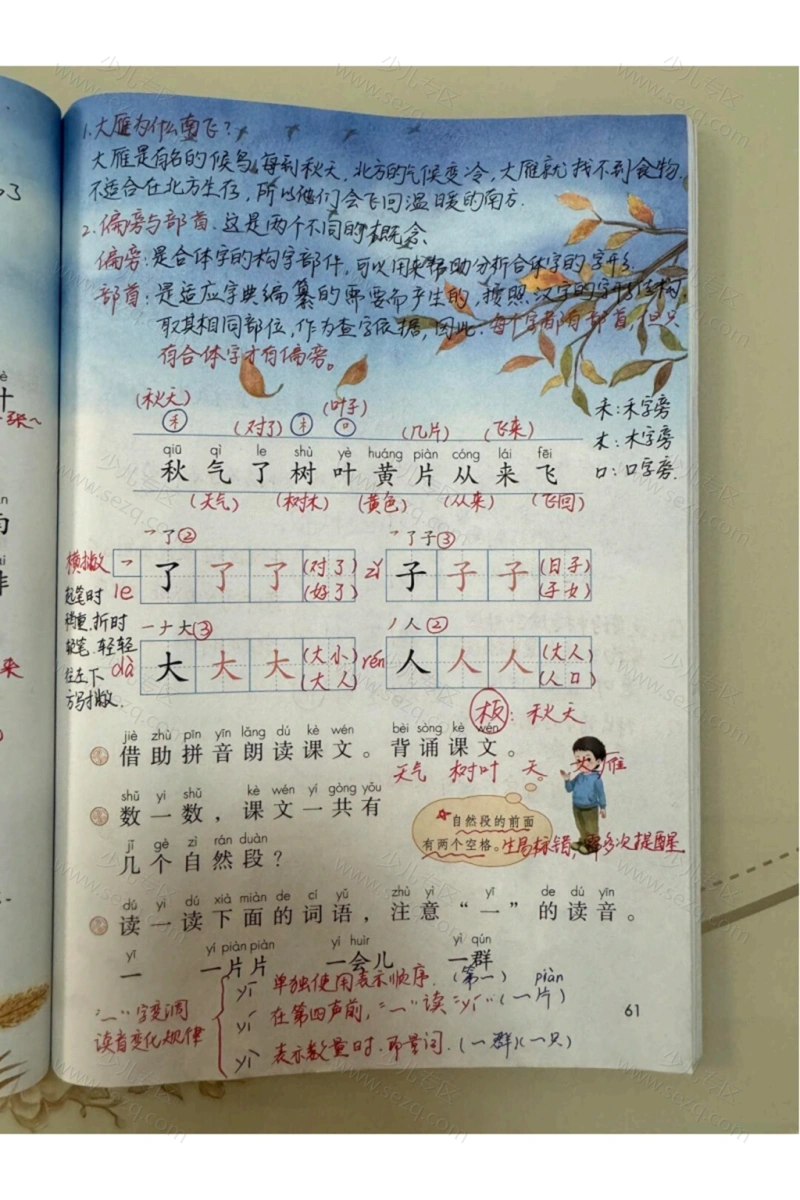 1.大雁为什么南飞?
大雁是有名的候鸟,每到秋天,北方的气候变冷,大雁就找不到食物,
不适合在北方生存,所以他们会飞回温暖的南方.
2.偏旁与部首.这是两个不同的概念
偏旁:是合体字的构字部件,可以用来帮助分析合体字的字形.
部首:是适应字典编纂的需要而产生的,按照汉字的字形结构,
取其相同部位,作为查字依据,因此.每个字都有部首,但只
有合体字才有偏旁。
(秋天) (叶子)
禾 (对了) 木 口 (几片) (飞来)
禾:禾字旁
木:木字旁
口:口字旁.
qiū qì le shù yè huáng piàn cóng lái fēi
秋 气 了 树 叶 黄 片 从 来 飞
(天气) (树木) (黄色) (从来) (飞回)
一了② 一了子③
横撇 一 了 了 了 (对了) zǐ 子 子 子 (日子)
le (好了) (子女)
起笔时
稍重.折时
轻笔.轻轻
往左下
一ナ大③ 丿人②
dà 大 大 大 (大小) rén 人 人 人 (大人)
(大人) (人口)
板:秋天
jiè zhù pīn yīn lǎng dú kè wén bèi sòng kè wén
借助拼音朗读课文。背诵课文。
天气 树叶 天。 大雁
shǔ yi shǔ kè wén yí gòng yǒu
数一数,课文一共有
自然段的前面
有两个空格。生易标错,需多次提醒
jǐ gè zì rán duàn
几个自然段?
dú yi dú xià miàn de cí yǔ zhù yì yī de dú yīn
读一读下面的词语,注意“一”的读音。
yī yí piàn piàn yí huìr yì qún
一 一片片 一会儿 一群
yī 单独使用表示顺序.(第一) piàn
“一”字变调
读音变化规律
yí 在第四声前,“一”读“yí”(一片)
yì 表示数量时.即量词.(一群)(一只)
61
少儿专区
www.sezq.com